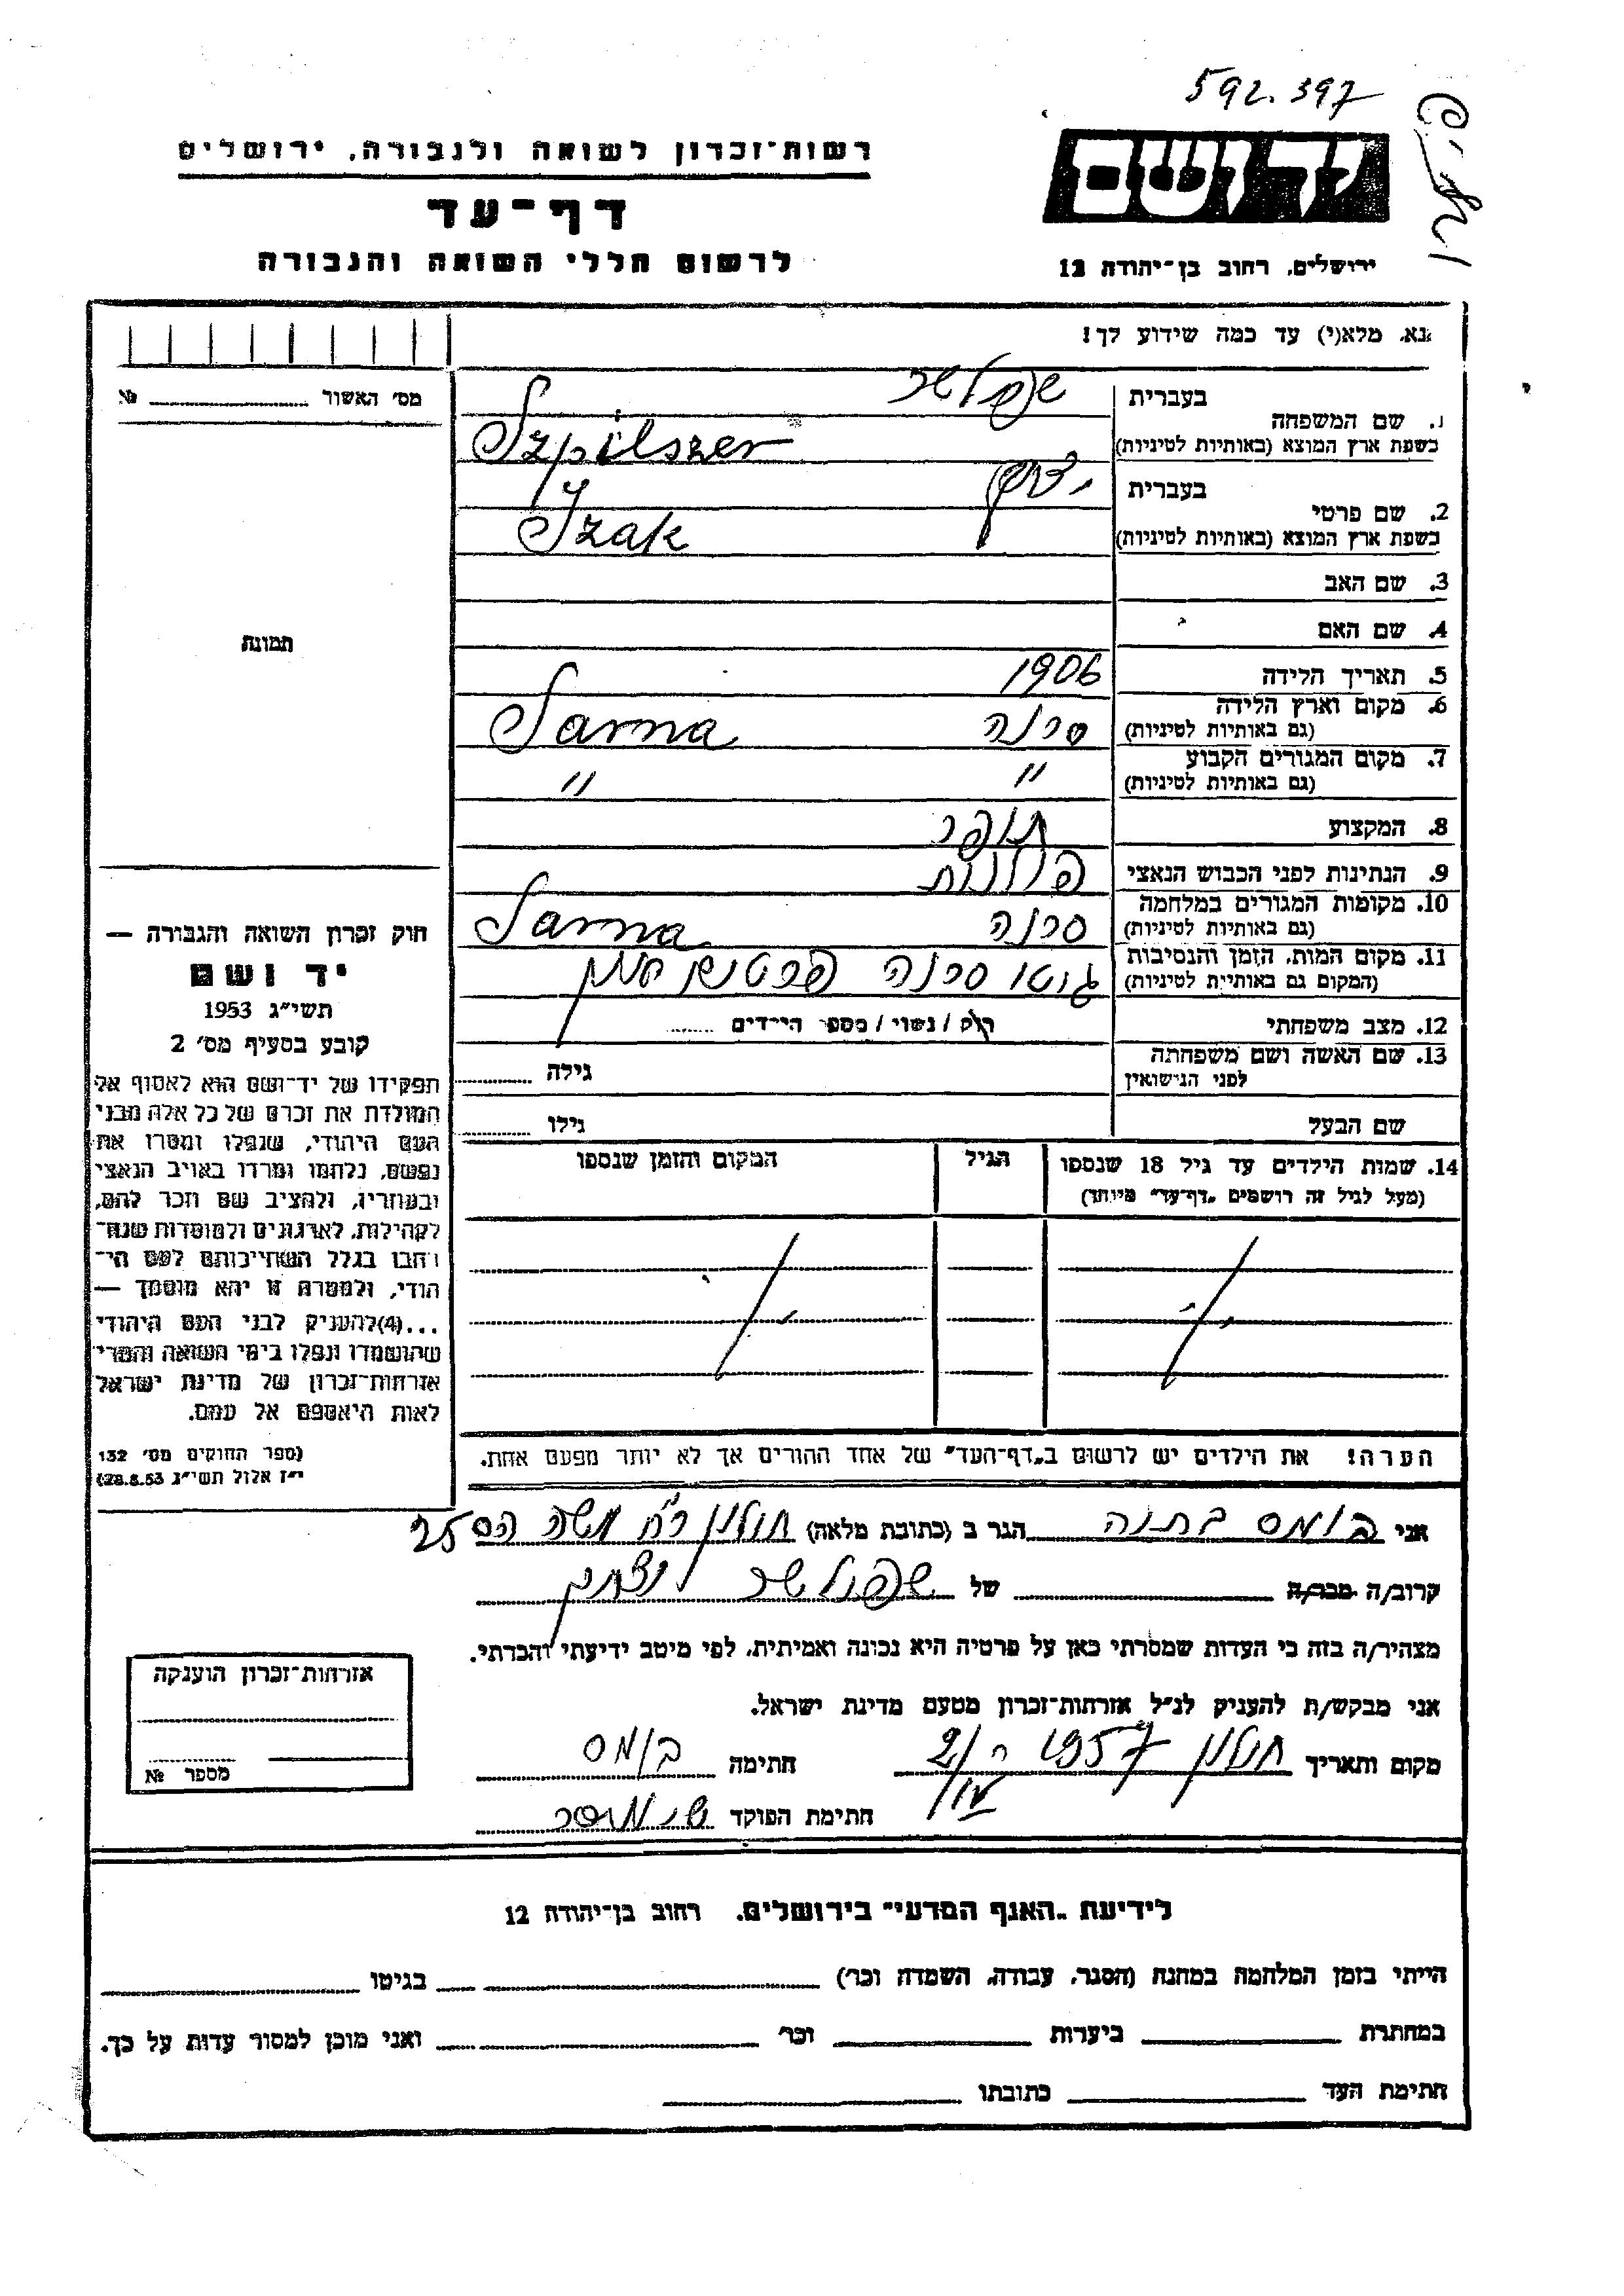 592.397
רשות־זכרון לשואה ולגבורה, ירושלים
דף־עד
לרשום חללי השואה והגבורה
ידושם
ירושלים, רחוב בן־יהודה 12
נא מלא(י) עד כמה שידוע לך!
מס׳ האשור № 
1. שם המשפחה בעברית
כשפת ארץ המוצא (באותיות לטיניות) Szpilszer
2. שם פרטי בעברית יצחק
כשפת ארץ המוצא (באותיות לטיניות) Izak
3. שם האב
4. שם האם
תמונה
5. תאריך הלידה 1906
6. מקום וארץ הלידה סרנה Sarna
(גם באותיות לטיניות)
7. מקום המגורים הקבוע " "
(גם באותיות לטיניות)
8. המקצוע תופר
9. הנתינות לפני הכבוש הנאצי פולנית
10. מקומות המגורים במלחמה סרנה Sarna
(גם באותיות לטיניות)
11. מקום המות, הזמן והנסיבות גיטו סרנה
(המקום גם באותיות לטיניות)
12. מצב משפחתי רוק / נשוי / מספר הילדים
13. שם האשה ושם משפחתה גילה
לפני הנישואין
שם הבעל גילו
14. שמות הילדים עד גיל 18 שנספו הגיל המקום והזמן שנספו
(מעל לגיל זה רושמים „דף־עד״ מיוחד)
הערה! את הילדים יש לרשום ב„דף־העד״ של אחד ההורים אך לא יותר מפעם אחת.
חוק זכרון השואה והגבורה —
יד ושם
תשי״ג 1953
קובע בסעיף מס׳ 2
תפקידו של יד־ושם הוא לאסוף אל
המולדת את זכרם של כל אלה מבני
העם היהודי, שנפלו ומסרו את
נפשם, נלחמו ומרדו באויב הנאצי
ובעוזריו, ולהציב שם וזכר להם,
לקהילות, לארגונים ולמוסדות שנח־
רבו בגלל השתייכותם לעם הי־
הודי, ולמטרה זו יהא מוסמך —
...(4)להעניק לבני העם היהודי
שהושמדו ונפלו בימי השואה והמרי
אזרחות־זכרון של מדינת ישראל
לאות היאספם אל עמם.
(ספר החוקים מס׳ 132
י״ז אלול תשי״ג 28.8.53)
אני בומס הגר ב (כתובת מלאה) חולון רח׳ משה הס 25
קרוב/ה מכר/ה של יצחק
מצהיר/ה בזה כי העדות שמסרתי כאן על פרטיה היא נכונה ואמיתית, לפי מיטב ידיעתי והכרתי.
אני מבקש/ת להעניק לנ״ל אזרחות־זכרון מטעם מדינת ישראל.
מקום ותאריך חולון 1957 חתימה בומס
חתימת הפוקד
אזרחות־זכרון הוענקה
מספר №
לידיעת „האגף המדעי״ בירושלים. רחוב בן־יהודה 12
הייתי בזמן המלחמה במחנה (הסגר, עבודה, השמדה וכו׳) בגיטו
במחתרת ביערות וכו׳ ואני מוכן למסור עדות על כך.
חתימת העד כתובתו